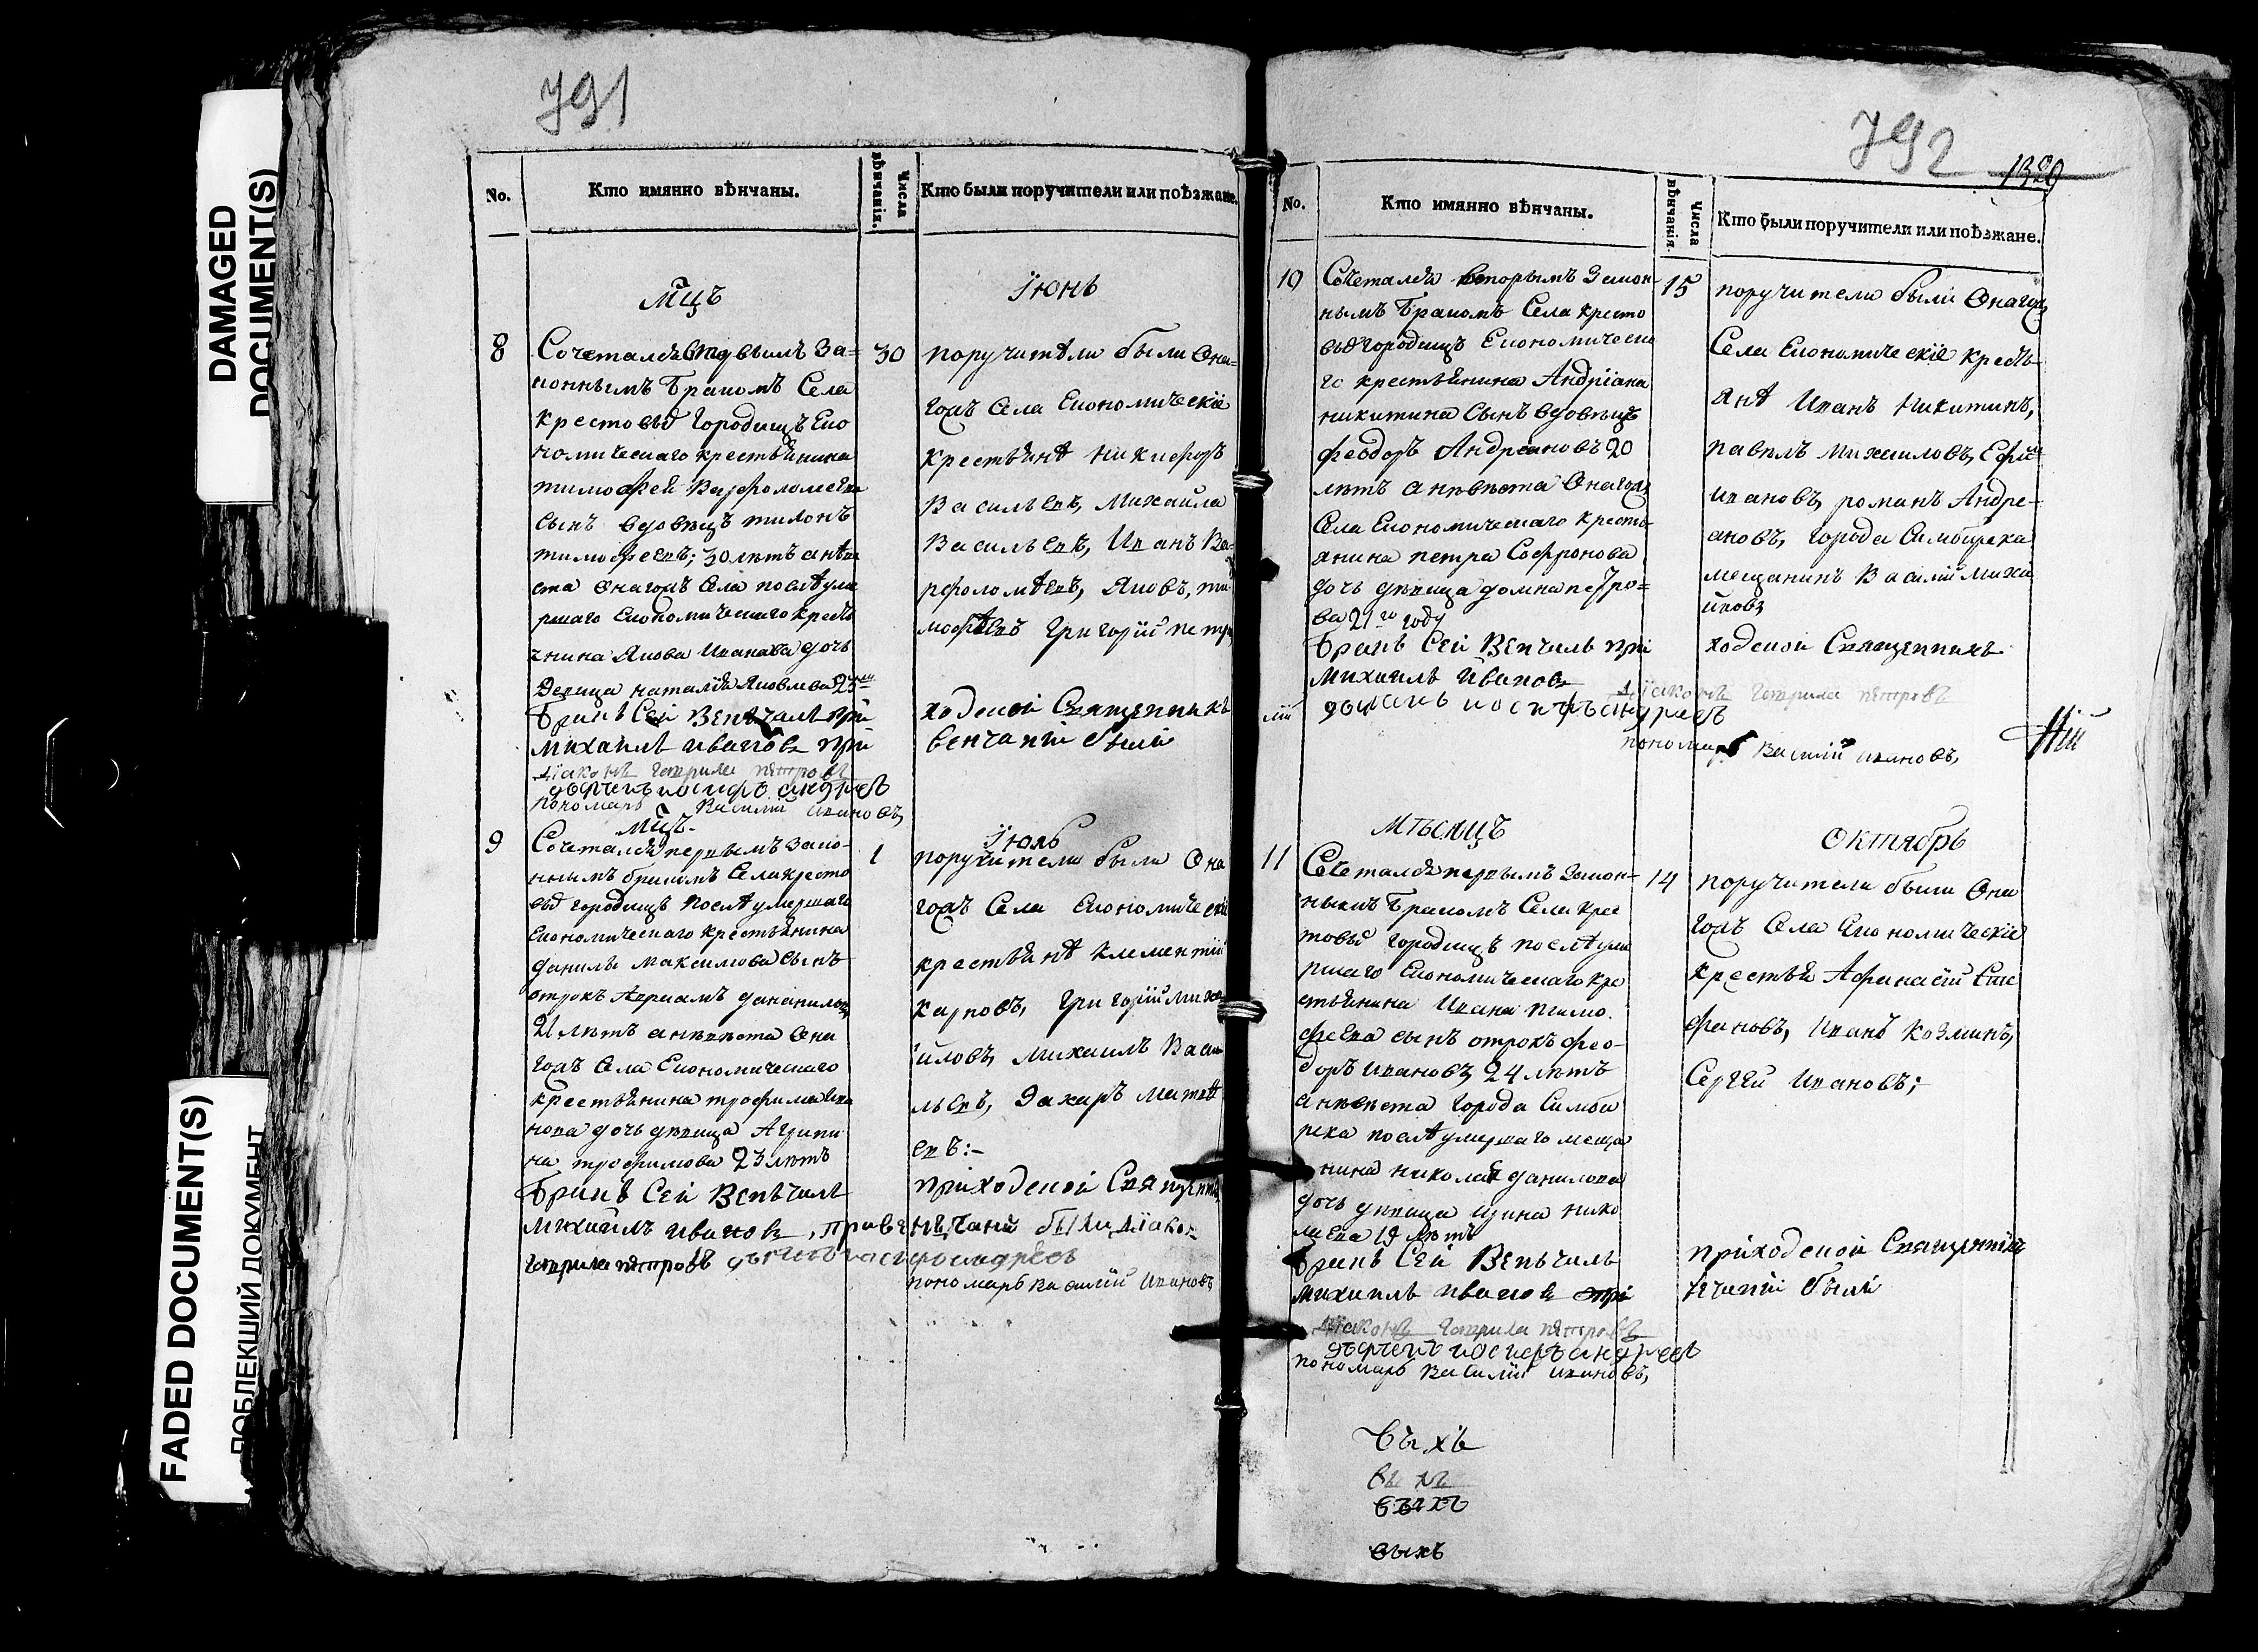 DAMAGED
DOCUMENT(S)
FADED DOCUMENT(S)
ПОБЛЕКШИЙ ДОКУМЕНТ
791
No.
Кто имянно вѣнчаны.
Числа
вѣнчанія.
Кто были поручители или поѣзжане.
Мцъ
Іюнь
8
Сочетался за=
коннымъ бракомъ Села
Крестовыя Городищъ Еко
номическаго крестьянина
тимофей Варфоломеева
сынъ вдовецъ тихонъ
тимофеевъ; 30 лѣтъ а невѣ
ста Онагожъ Села послѣ уме
ршаго Економическаго кресть
янина Якова Иванова дочь
Девица наталья Яковлева 23
бракъ Сей Венчалъ при
михаилъ ивановъ при
діаконъ гаврила петровъ
дьячекъ иосифъ андреевъ
пономарь Василий ивановъ,
30
поручители были Она=
гожъ Села Економическіе
крестьянѣ Никифоръ
Васильевъ, Михайла
Васильевъ, Иванъ Ва=
рфоломѣевъ, Яковъ, ти
мофѣевъ григорій петро
ходской Священникъ
венчаніи были
Мцъ
Іюль
9
Сочетался первымъ зако-
ннымъ бракомъ Села кресто
выя городищъ послѣ умершаго
Економическаго крестьянина
данилы максимова сынъ
отрокъ Авраамъ даниловъ
21 лѣтъ а невѣста Она
гожъ Села Економическаго
крестьянина трофима Ива
нова дочь девица Агрипи
на трофимова 23 лѣтъ
бракъ Сей Венчалъ
михаилъ ивановъ, при ве
гаврила петровъ дьячекъ иосифъ андреевъ
1
поручители были Она
гожъ Села Економическіе
крестьянѣ климентій
карповъ, григорій миха
йловъ, михаилъ Васи
льевъ, Захаръ матвѣ
евъ:-
приходской Священникъ
нчаніи были діаконъ
пономарь василий ивановъ
792
1329
No.
Кто имянно вѣнчаны.
Числа
вѣнчанія.
Кто были поручители или поѣзжане.
10
Сочетался вторымъ Закон-
нымъ бракомъ Села кресто
выя городищъ Економическа
го крестьянина Андріана
никитина сынъ вдовецъ
феодоръ Андреановъ 20
лѣтъ а невѣста Онагожъ
Села Економическаго кресть
янина петра Софронова
дочь девица домна петро=
ва 21го году
бракъ Сей Венчалъ при
михаилъ ивановъ
діаконъ гаврила петровъ
дьячекъ иосифъ андреевъ
пономарь Василий ивановъ,
15
поручители были Онагожъ
Села Економическіе кресть
янѣ Иванъ Никитинъ,
павелъ михаиловъ, Ефи
ивановъ, романъ Андре-
ановъ, города Симбирска
мещанинъ Василий миха
йловъ
ходской Священникъ
Мѣсяцъ
Октябрь
11
Сочетался первымъ закон-
нымъ бракомъ Села крес
товыя городищъ послѣ уме
ршаго Економическаго кре
стьянина Ивана тимо
феева сынъ отрокъ фео-
доръ ивановъ, 24 лѣтъ
а невѣста города Симби
рска послѣ умершаго меща
нина николая данилова
дочь девица ирина нико
лаева 19 лѣтъ
бракъ Сей Венчалъ
михаилъ ивановъ при
діаконъ гаврила петровъ
дьячекъ иосифъ андреевъ
пономарь Василий ивановъ,
14
поручители были Она
гожъ Села Економическіе
крестья Афанасій Сте
фановъ, иванъ Козминъ,
Сергѣй Ивановъ;-
приходской Священникъ
нчаніи были